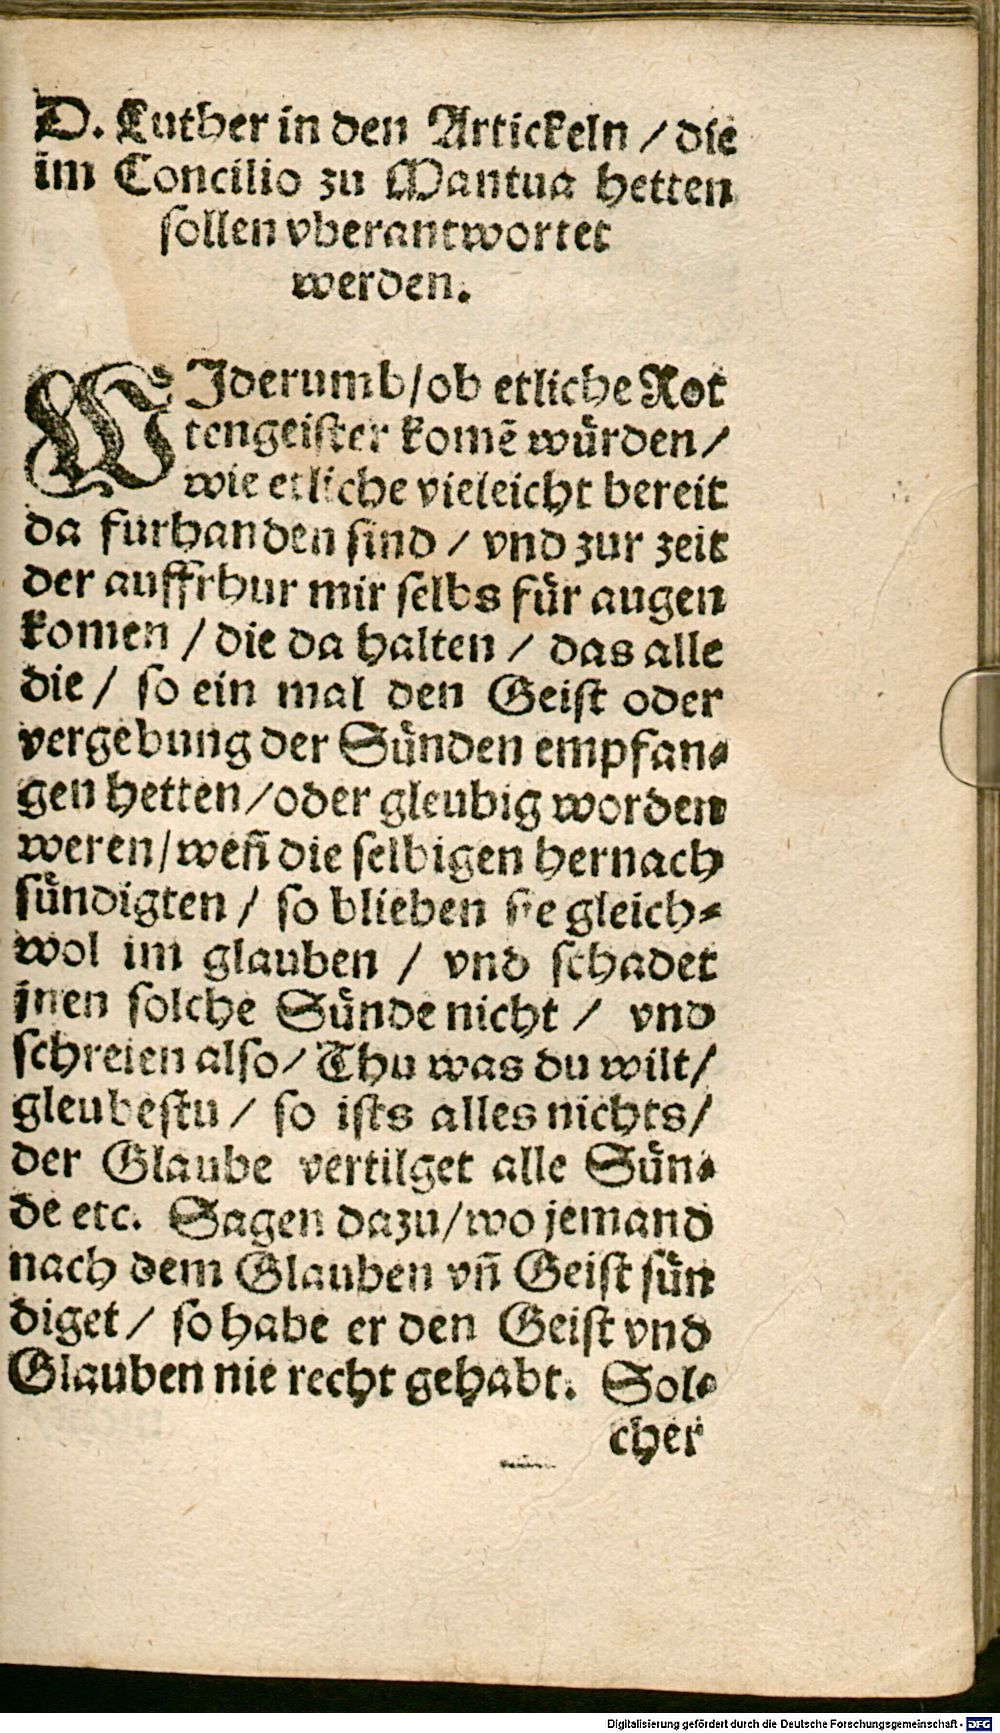 D. Luther in den Artickeln / die
im Concilio zu Mantua hetten
sollen vberantwortet
werden.
WJderumb / ob etliche Rot
tengeister komē würden /
wie etliche vieleicht bereit
da furhanden sind / vnd zur zeit
der auffrhur mir selbs für augen
komen / die da halten / das alle
die / so ein mal den Geist oder
vergebung der Sünden empfan⸗
gen hetten / oder gleubig worden
weren / weñ die selbigen hernach
sündigten / so blieben sie gleich⸗
wol im glauben / vnd schadet
jnen solche Sünde nicht / vnd
schreien also / Thu was du wilt /
gleubestu / so ists alles nichts /
der Glaube vertilget alle Sün⸗
de etc. Sagen dazu / wo jemand
nach dem Glauben vñ Geist sün
diget / so habe er den Geist vnd
Glauben nie recht gehabt. Sol⸗
cher
Digitalisierung gefördert durch die Deutsche Forschungsgemeinschaft - DFG